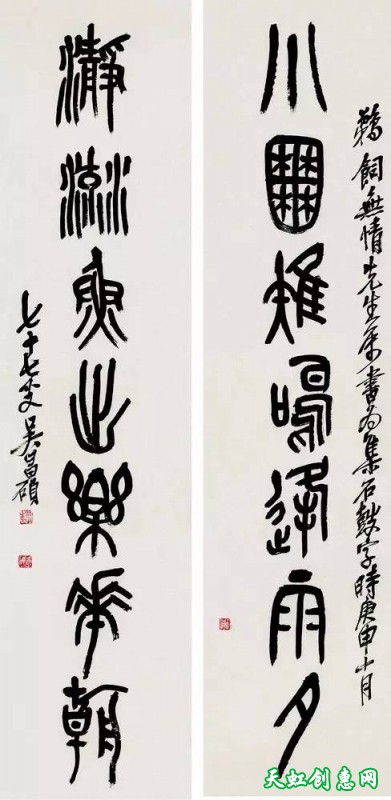 鵜飼無情先生属書為集石鼓字時庚申十月
小囿雉鳴逢雨夕
瀞流魚出樂華朝
七十七叟吳昌碩
天虹创惠网